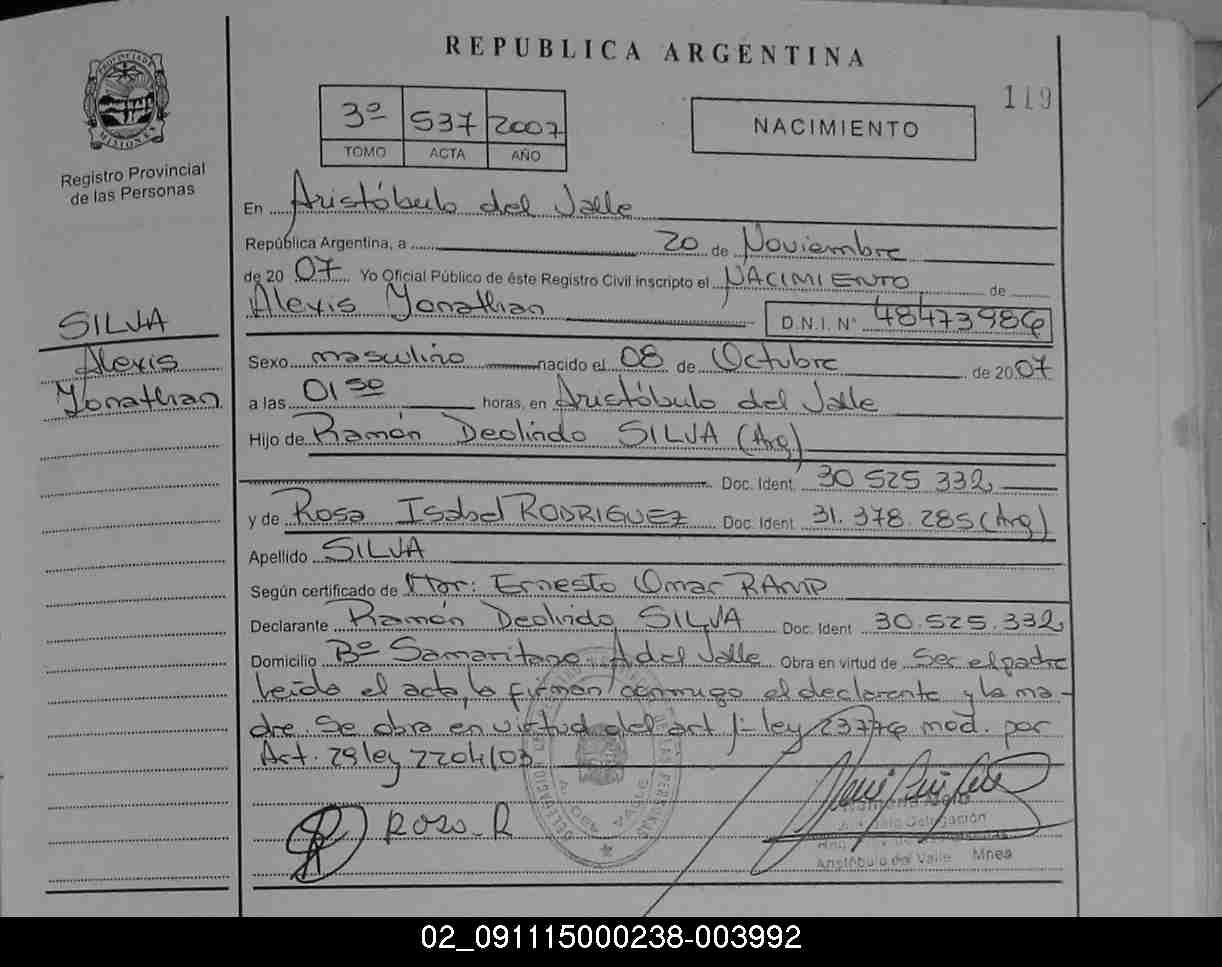 REPUBLICA ARGENTINA
119
PROVINCIA DE MISIONES
Registro Provincial
de las Personas
3º 537 2007
TOMO ACTA AÑO
NACIMIENTO
En Aristóbulo del Valle
República Argentina, a 20 de Noviembre
de 20 07 Yo Oficial Público de éste Registro Civil inscripto el NACIMIENTO de
Alexis Yonathan D.N.I. Nº 48473986
SILVA
Alexis
Yonathan
Sexo masculino nacido el 08 de Octubre de 20 07
a las 01 30 horas, en Aristóbulo del Valle
Hijo de Ramón Deolindo SILVA (Arg)
Doc. Ident. 30 525 332
y de Rosa Isabel RODRIGUEZ Doc. Ident 31. 378. 285 (Arg)
Apellido SILVA
Según certificado de Ernesto Omar RAMP
Declarante Ramón Deolindo SILVA Doc. Ident 30.525.332
Domicilio Bº Samaritano A del Valle Obra en virtud de Ser el padre
leída el acta, la firman conmigo el declarante y la ma-
dre. Se obra en virtud del art 1º ley 23776 mod. por
Art. 29 ley 2204/03
Rosa R
Delegación
Aristóbulo del Valle Mnes
02_091115000238-003992